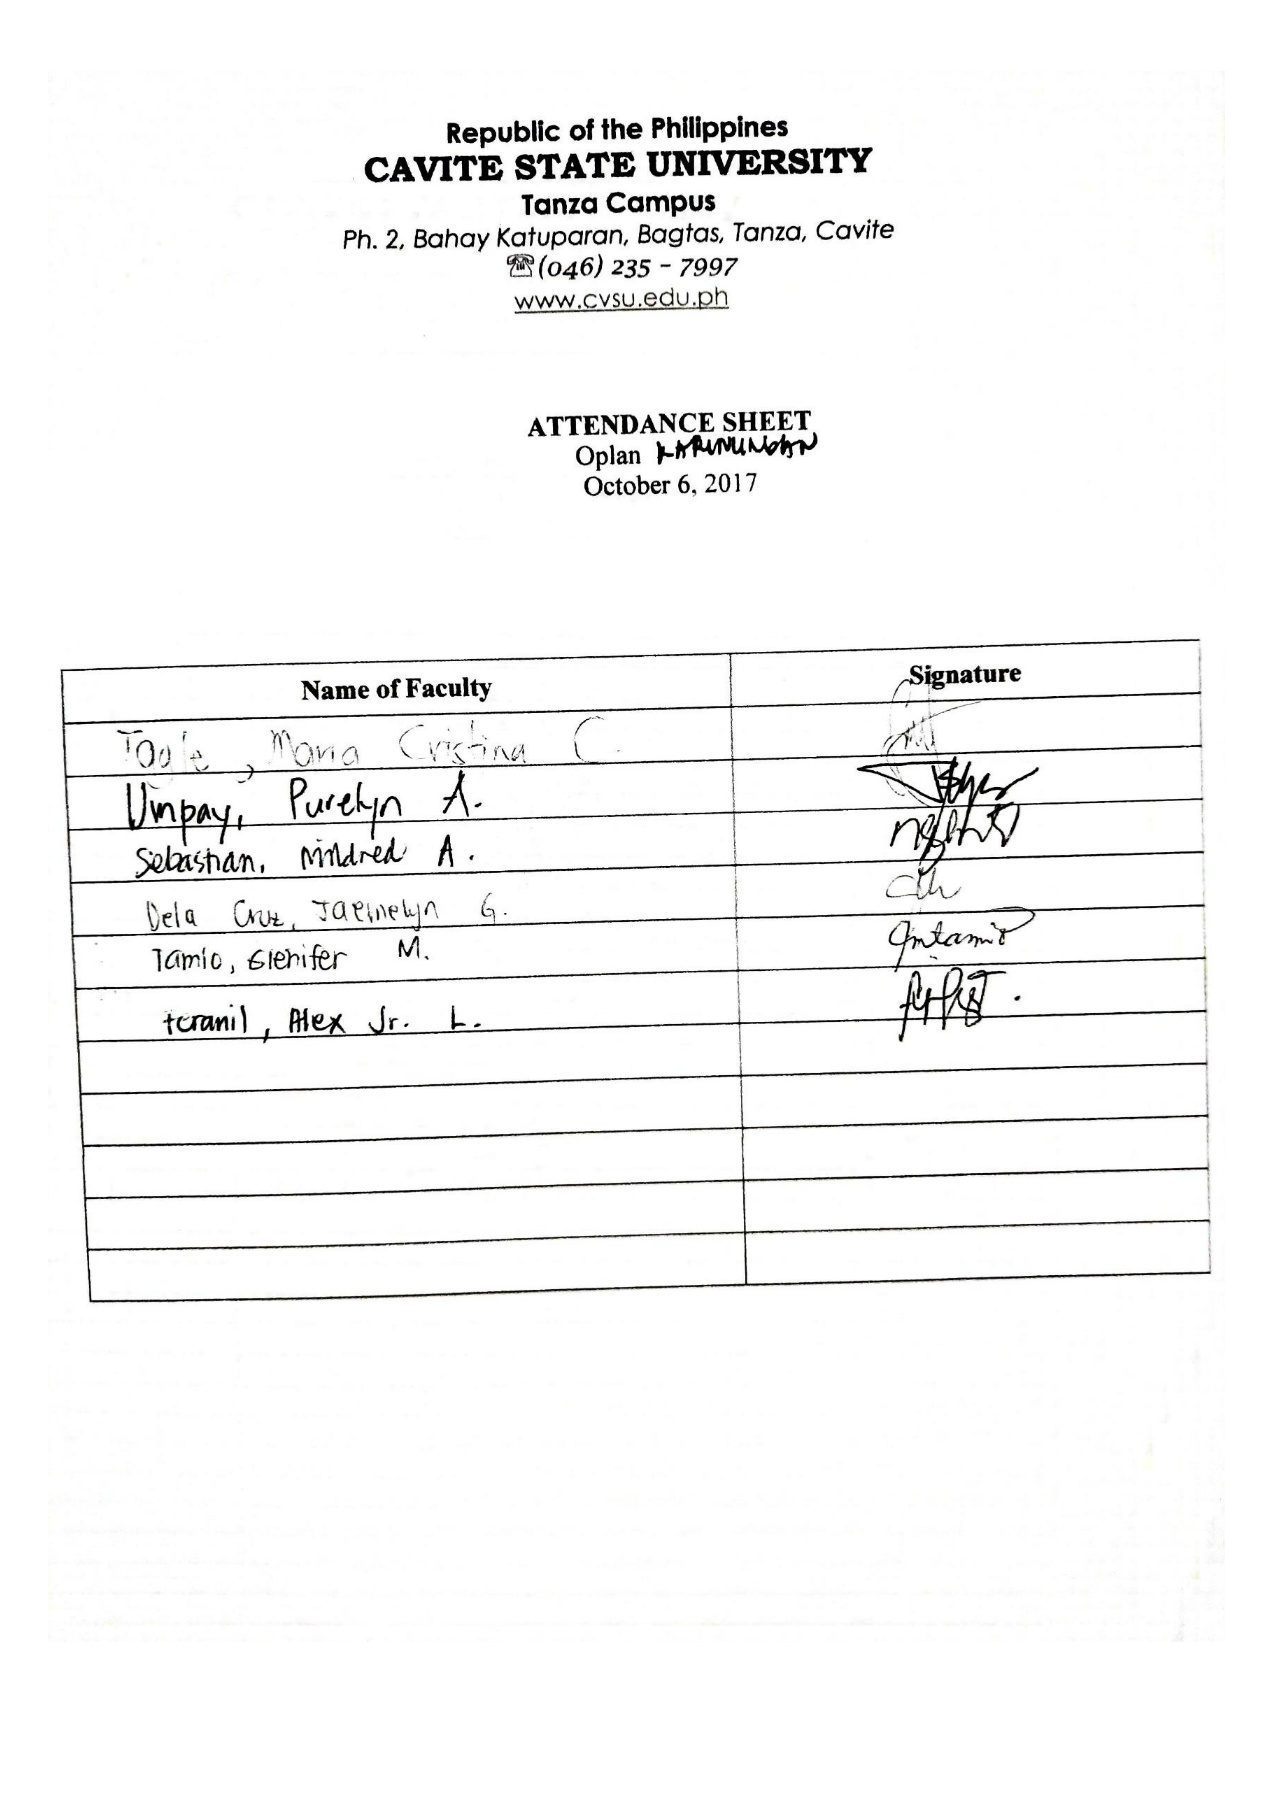 Republic of the Philippines
CAVITE STATE UNIVERSITY
Tanza Campus
Ph. 2, Bahay Katuparan, Bagtas, Tanza, Cavite
☎(046) 235 - 7997
www.cvsu.edu.ph
ATTENDANCE SHEET
Oplan KARUNUNGAN
October 6, 2017
Name of Faculty Signature
Tagle, Maria Cristina C.
Umpay, Purelyn A.
Sebastian, Mildred A.
Dela Cruz, G.
Tamio, Glenifer M. gmtamio
Alex Jr. L.